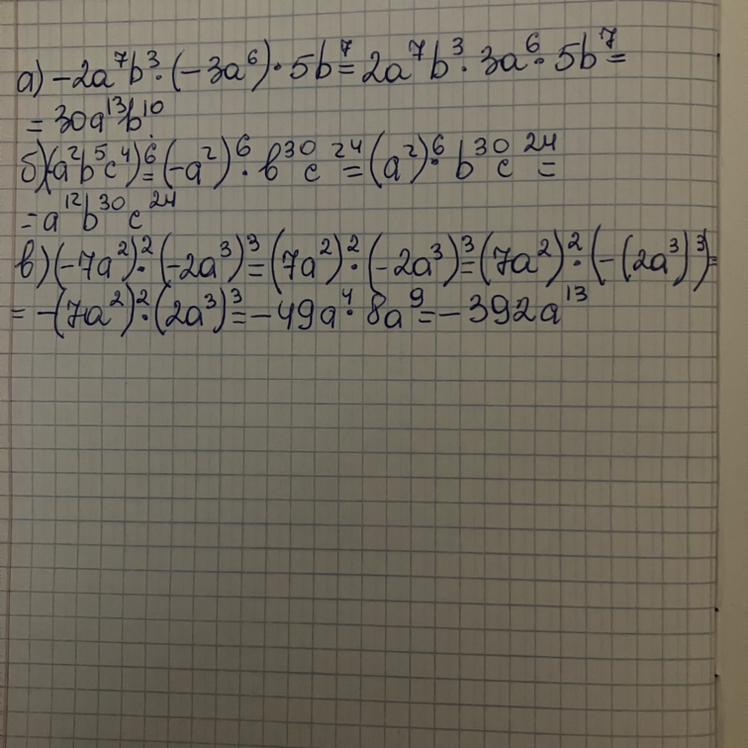 а) -2a⁷b³·(-3a⁶)·5b⁷=2a⁷b³·3a⁶·5b⁷=
=30a¹³b¹⁰.
б)(-a²b⁵c⁴)⁶=(-a²)⁶·b³⁰c²⁴=(a²)⁶·b³⁰c²⁴=
=a¹²b³⁰c²⁴
в)(-7a²)²·(-2a³)³=(7a²)²·(-2a³)³=(7a²)²·(-(2a³)³)=
=-(7a²)²·(2a³)³=-49a⁴·8a⁹=-392a¹³